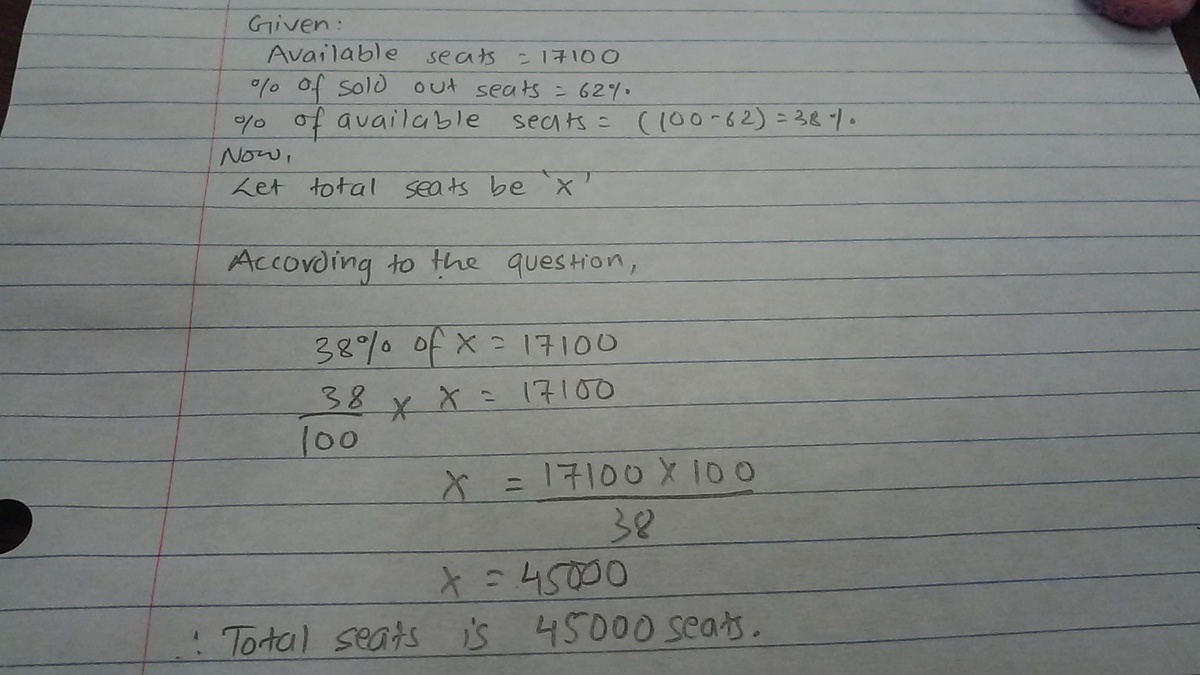 Given:
Available seats = 17100
% of sold out seats = 62%.
% of available seats = (100-62) = 38%.
Now,
Let total seats be 'x'
According to the question,
38% of x = 17100
38/100 x x = 17100
x = 17100 x 100
38
x = 45000
∴ Total seats is 45000 seats.